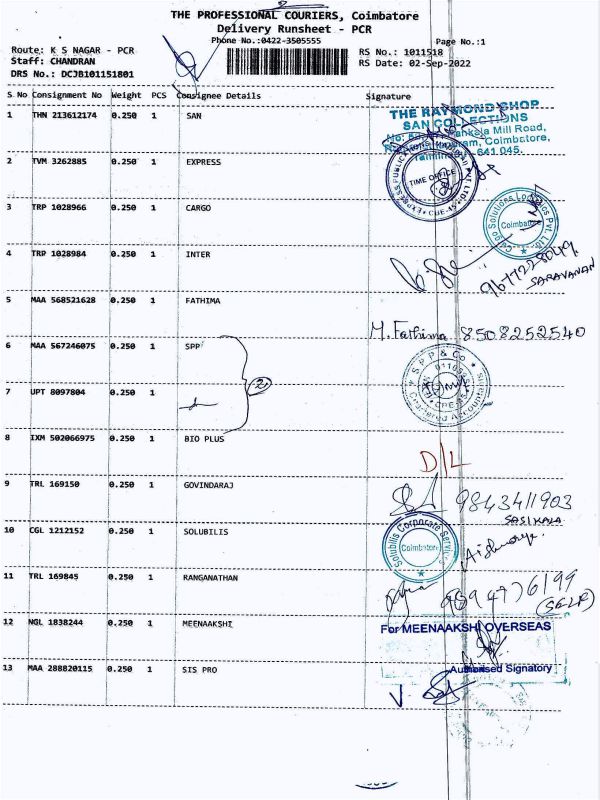 THE PROFESSIONAL COURIERS, Coimbatore
Delivery Runsheet - PCR
Phone No.:0422-3505555
Page No.:1
Route: K S NAGAR - PCR
RS No.: 1011518
Staff: CHANDRAN
RS Date: 02-Sep-2022
DRS No.: DCJB101151801
S No Consignment No Weight PCS Consignee Details Signature
1 THN 213612174 0.250 1 SAN
THE RAYMOND SHOP
SAN COLLECTIONS
Mill Road,
Coimbatore,
641 045.
2 TVM 3262885 0.250 1 EXPRESS
TIME OFFICE
3 TRP 1028966 0.250 1 CARGO
Cargo Solutions Logistics Pvt. Ltd.
Coimbatore
4 TRP 1028984 0.250 1 INTER
SARAVANAN
5 MAA 568521628 0.250 1 FATHIMA
M. Fathima 8508252540
6 MAA 567246075 0.250 1 SPP
2
S P P & Co
Chartered Accountants
7 UPT 8097804 0.250 1
8 IXM 502066975 0.250 1 BIO PLUS
D/L
9 TRL 169150 0.250 1 GOVINDARAJ
9843411903
SASIKALA
10 CGL 1212152 0.250 1 SOLUBILIS
Solubilis Corporate Services
Coimbatore
11 TRL 169845 0.250 1 RANGANATHAN
9894976199
(SELF)
12 NGL 1838244 0.250 1 MEENAAKSHI
For MEENAAKSHI OVERSEAS
Authorised Signatory
13 MAA 288820115 0.250 1 SIS PRO